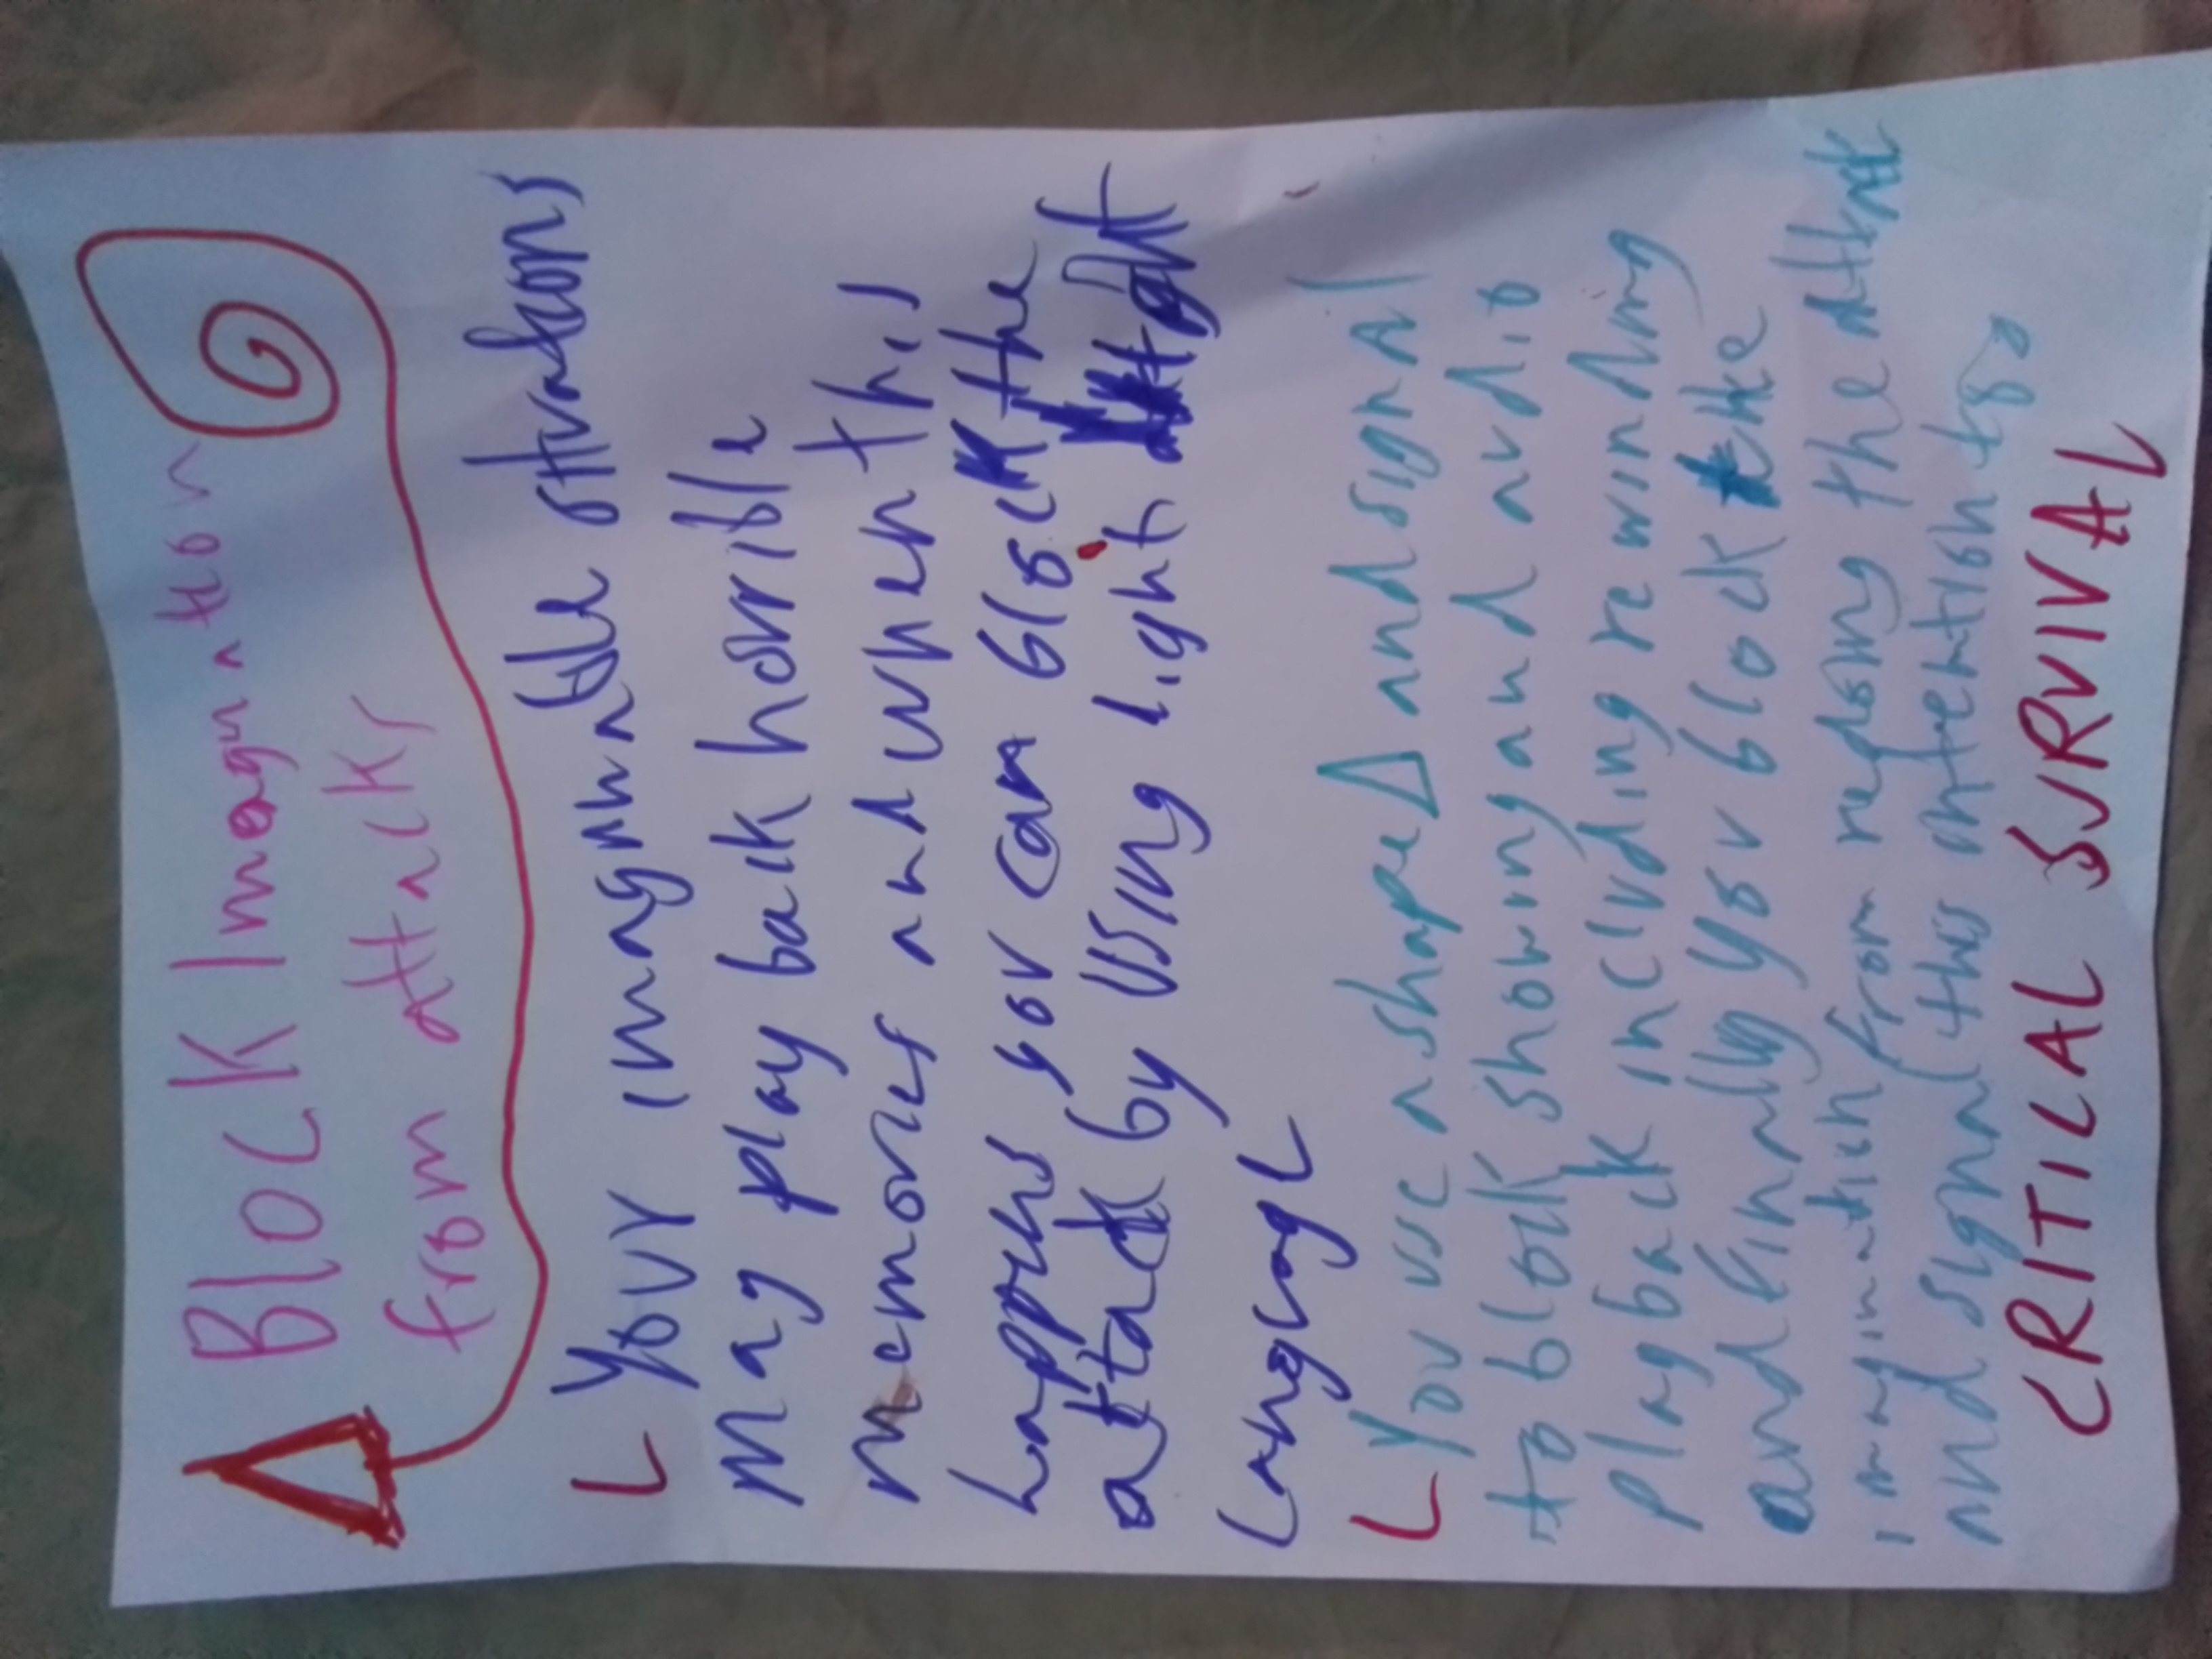 BLOCK Imagination
from attacks
Your imaginable
may play back horrible
memories and when this
happens you can block the
attack by using light
Language
You use a shape and signal
to block showing and audio
playback including rewinding
and finally you block the
imagination from the
and signal (this
CRITICAL SURVIVAL